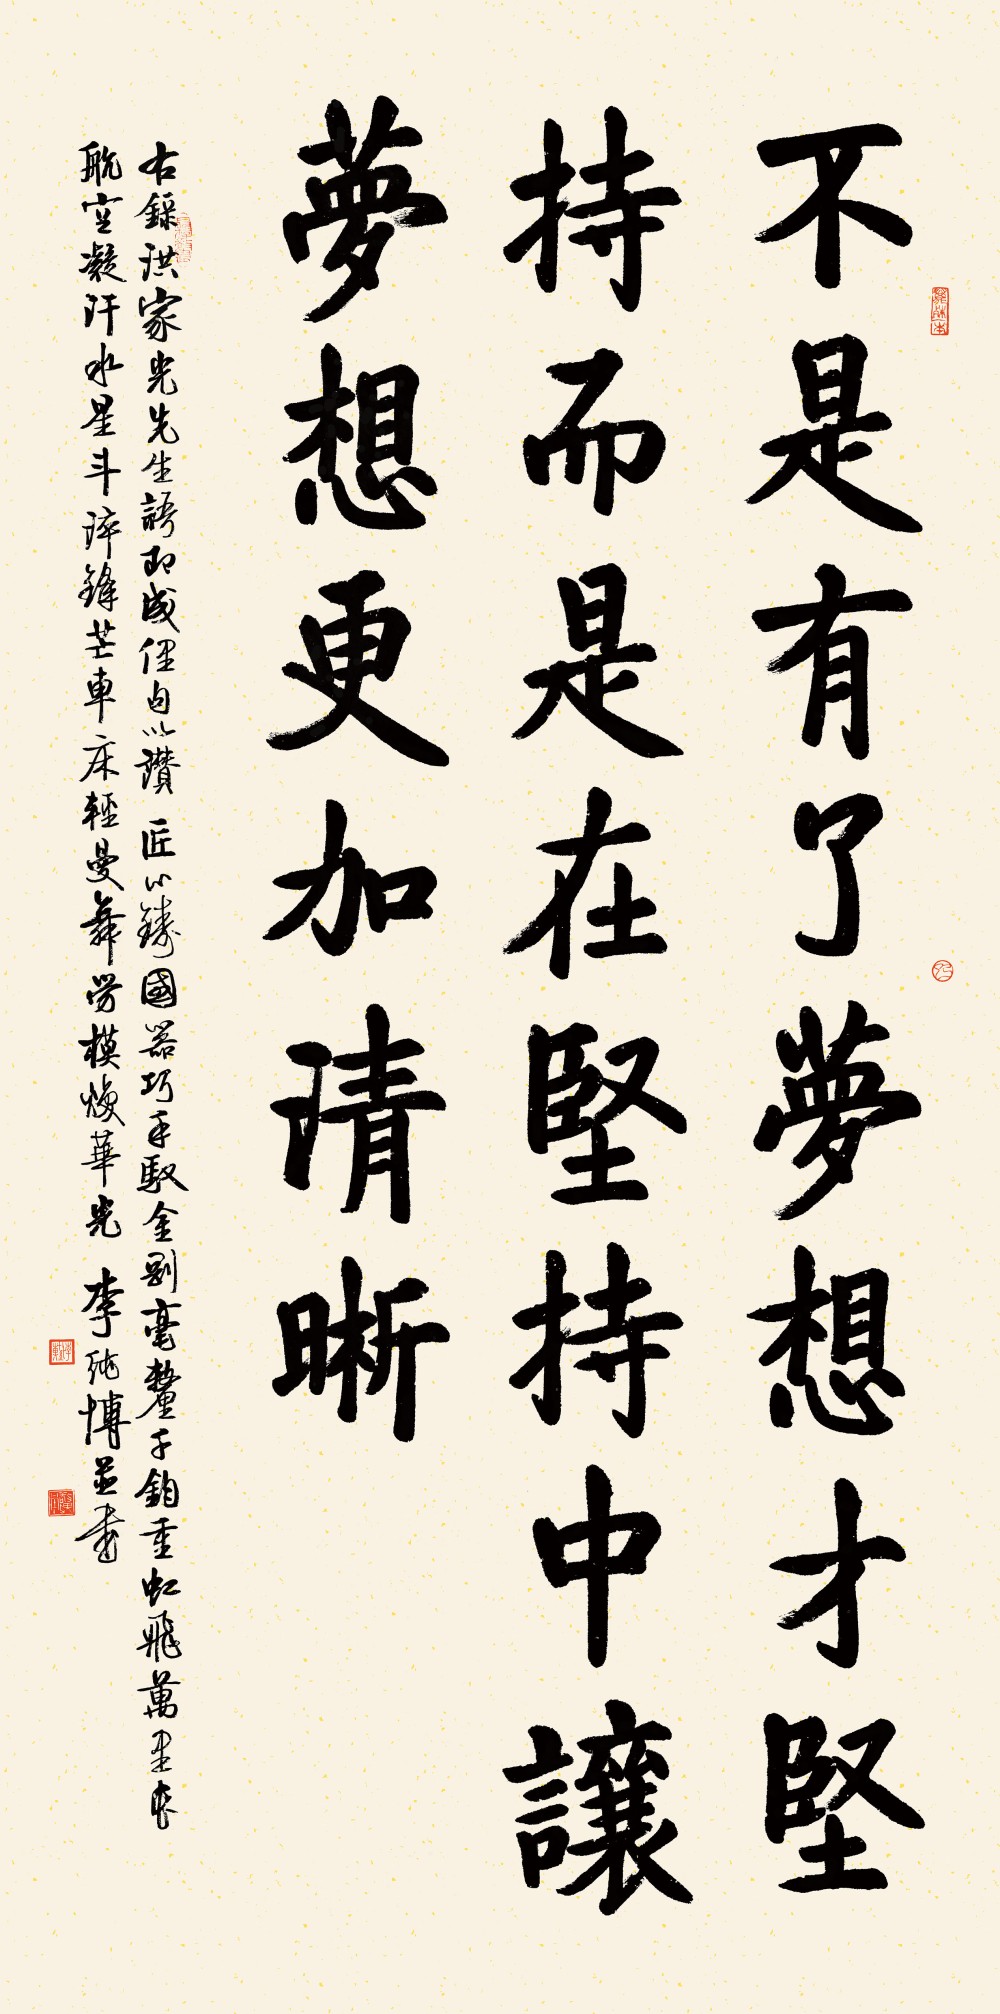 不是有了夢想才堅
持而是在堅持中讓
夢想更加清晰
右錄洪家光先生語即成俚句以讚 匠心鑄國器巧手馭金剛毫釐千鈞重虹飛萬里長
航空凝汗水星斗淬鋒芒車床輕曼舞勞模煥華光 李純博並書